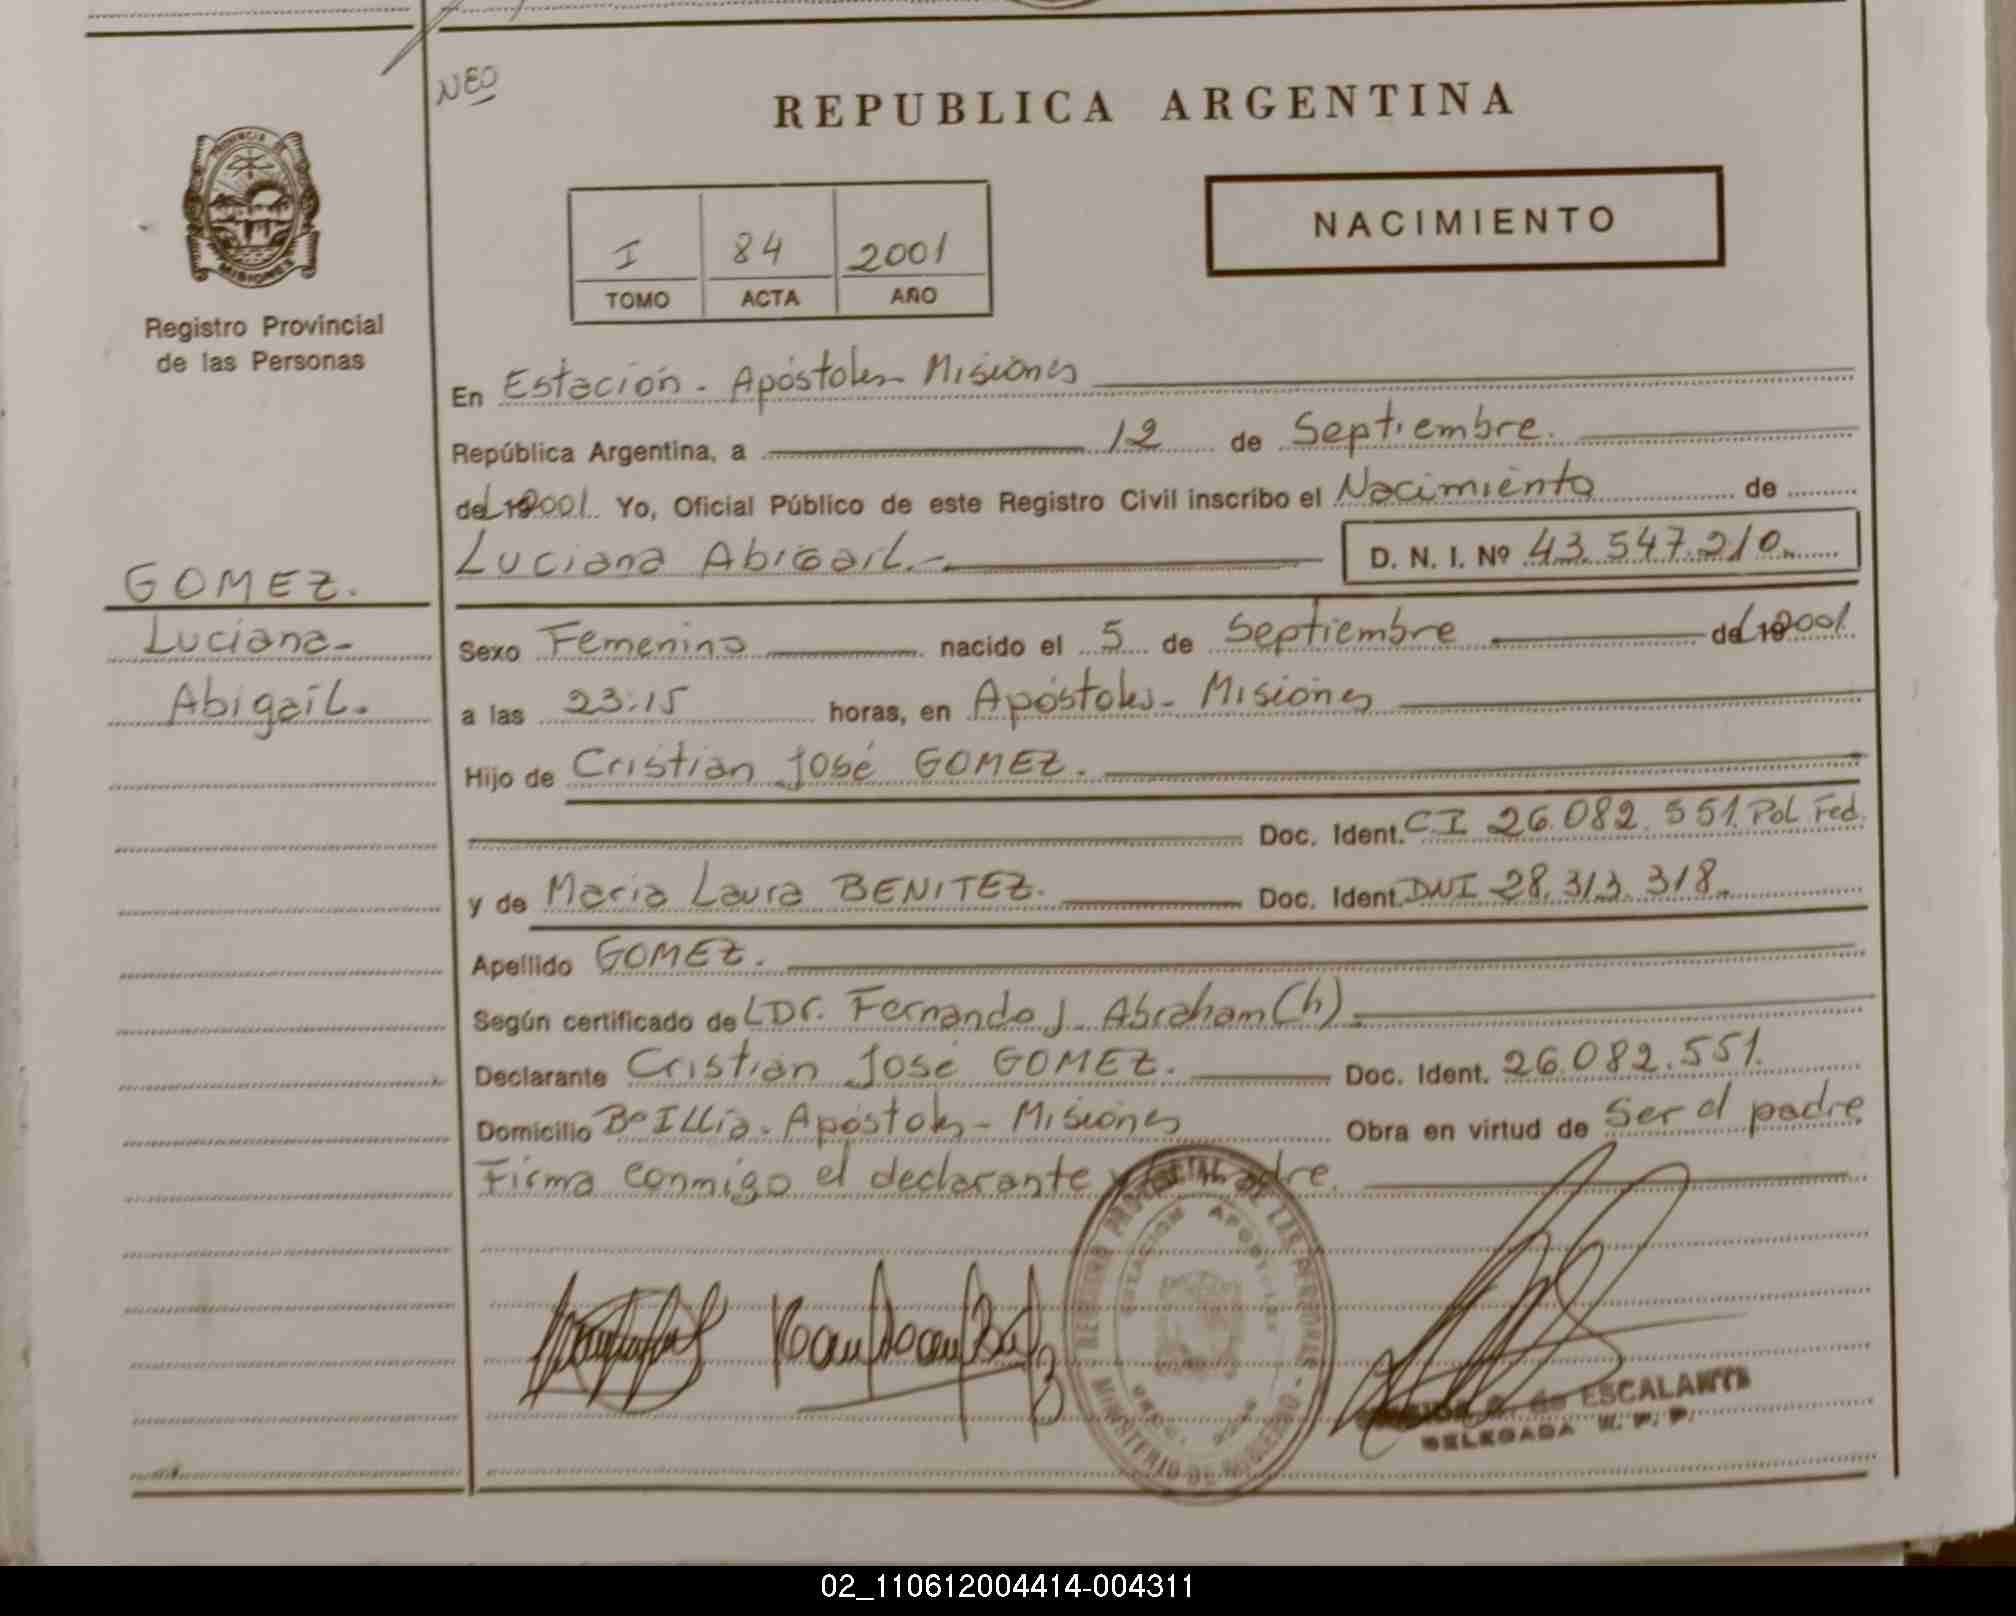 NEO
REPUBLICA ARGENTINA
PROVINCIA DE
MISIONES
I 84 2001
TOMO ACTA AÑO
NACIMIENTO
Registro Provincial
de las Personas
En Estación - Apóstoles - Misiones
República Argentina, a 12 de Septiembre.
del 2001. Yo, Oficial Público de este Registro Civil inscribo el Nacimiento de
Luciana Abigail.- D. N. I. Nº 43.547.210.
GOMEZ.
Luciana-
Abigail.
Sexo Femenino nacido el 5 de Septiembre del 2001.
a las 23:15 horas, en Apóstoles - Misiones
Hijo de Cristian José GOMEZ.
Doc. Ident. CI 26.082.551. Pol Fed.
y de Maria Laura BENITEZ. Doc. Ident. DNI 28.313.318.
Apellido GOMEZ.
Según certificado del Dr. Fernando J. Abraham (h).
Declarante Cristian José GOMEZ. Doc. Ident. 26.082.551.
Domicilio Bº ILLia. Apóstoles - Misiones Obra en virtud de Ser el padre
Firma conmigo el declarante y la madre.
REGISTRO PROVINCIAL DE LAS PERSONAS
ESTACION APOSTOLES
MINISTERIO DE GOBIERNO
de ESCALANTE
DELEGADA R. P. P.
02_110612004414-004311